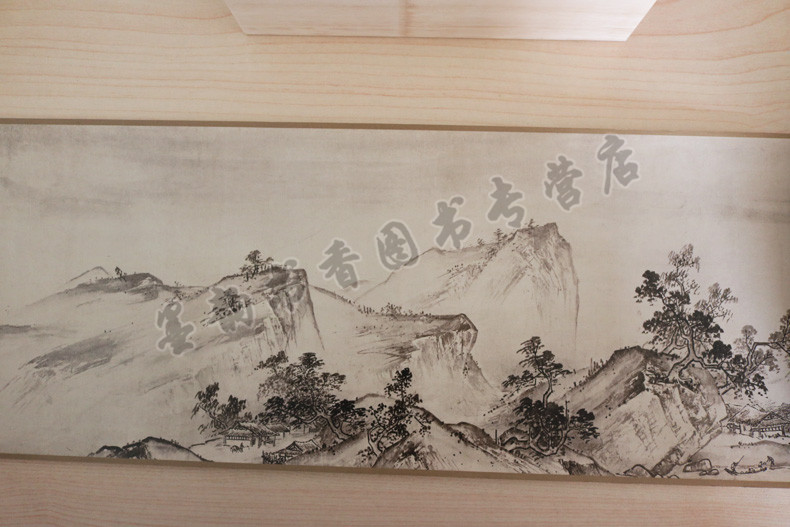 墨韵书香图书专营店